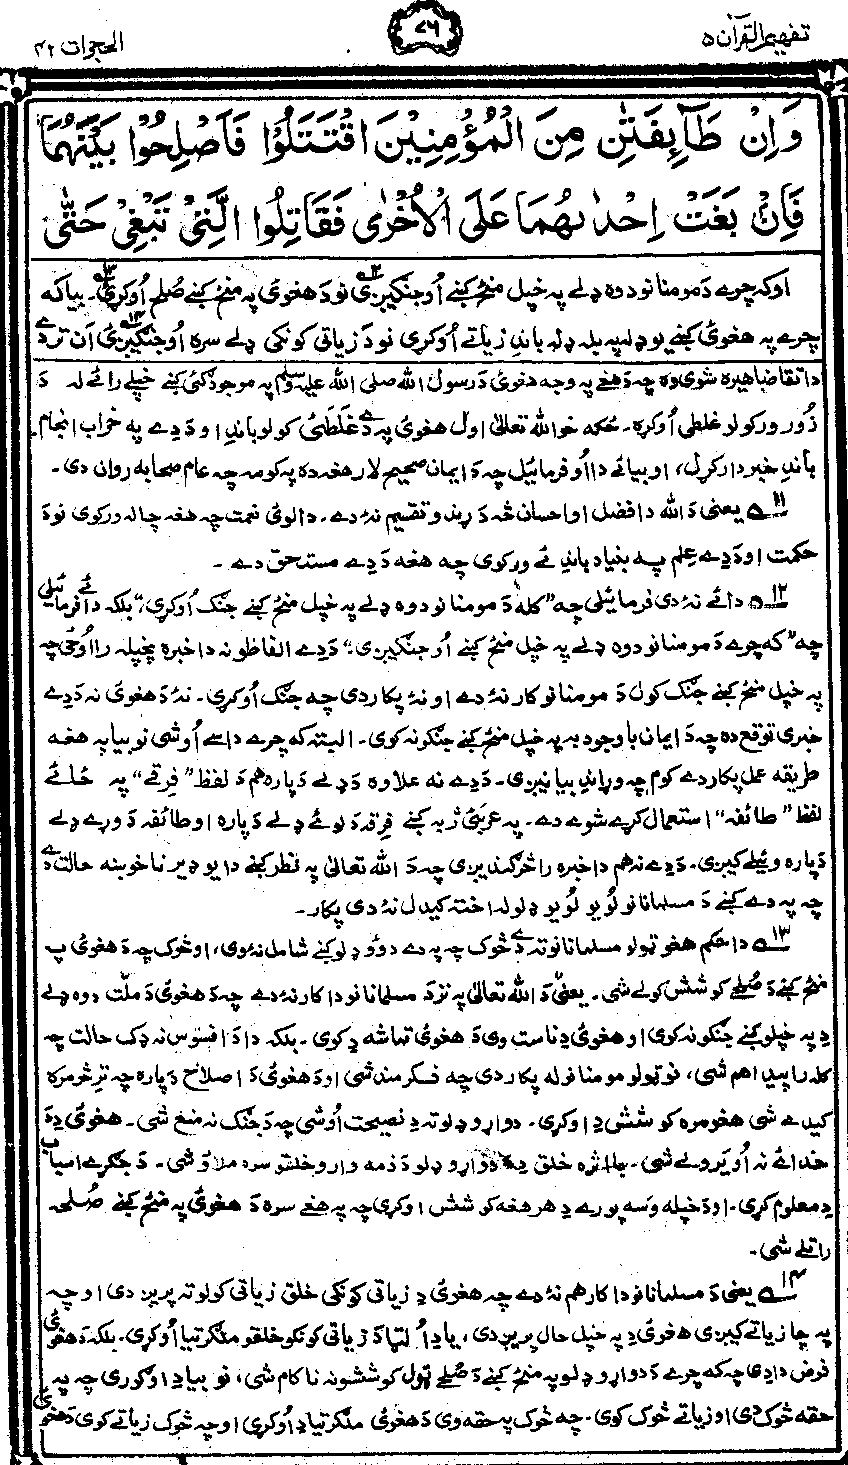 تفهیم القرآن ۵
۷۶
الحجرات ۴۲
وَاِنْ طَآئِفَتٰنِ مِنَ الْمُؤْمِنِيْنَ اقْتَتَلُوْا فَاَصْلِحُوْا بَيْنَهُمَا
فَاِنْۢ بَغَتْ اِحْدٰىهُمَا عَلَى الْاُخْرٰى فَقَاتِلُوا الَّتِيْ تَبْغِيْ حَتّٰى
اوکه چرے دَ مومنانو دوه ډلے په خپل منځ کښے اُوجنګیږی ۱۲ نو دَ هغوئ په منځ کښے صُلح اُوکړئ ۱۳۔ بیا که
چرے په هغوئ کښے یو ډلہ په بلہ ډلہ باندِ زیاتے اُوکړی نو دَ زیاتی کونکی ډلے سره اُوجنګیږئ ۱۴ اَن تر دے
دا تقاضا ظاهره شوی وه چه دَ هغے په وجه دغوئ دَ رسول الله صلی الله علیہ وسلم په موجودګئ کښے خپلے رائے له دَ
زور ورکولو غلطی اُوکړه۔ ځکه خو الله تعالیٰ اول هغوئ په دے غَلَطئ کولو باندِ او دَ دے په خراب انجام
باندِ خبردار کړل، او بیائے دا اُوفرمائیل چه دَ ایمان صحیح لار هغه ده په کومه چه عام صحابه روان دی۔
۱۱ یعنی دَ الله دا فضل او احسان څه دَ ړندو تقسیم نۀ دے۔ دا لوئ نعمت چه هغه چا له ورکوی نو دَ
حکمت او دَ دے عِلم په بنیاد باندِ ئے ورکوی چه هغه دَ دے مستحق دے۔
۱۲ دائے نۀ دی فرمائیلی چه ”کله دَ مومنانو دوه ډلے په خپل منځ کښے جنګ اُوکړی،“ بلکه دا ئے فرمائیلی
چه ”که چرے دَ مومنانو دوه ډلے په خپل منځ کښے اُوجنګیږی“۔ دَ دے الفاظو نه دا خبره پخپله را اُوځی چه
په خپل منځ کښے جنګ کول دَ مومنانو کار نۀ دے او نۀ پکار دی چه جنګ اُوکړی۔ نۀ دَ هغوئ نه دَ دے
خبرے توقع ده چه دَ ایمان باوجود به په خپل منځ کښے جنګونه کوی۔ البته که چرے داسے اُوشی نو بیا په هغه
طریقه عمل پکار دے کوم چه وړاندِ بیانیږی۔ دَ دے نه علاوه دَ ډلے دَ پاره هم دَ لفظ ”فرقے“ په ځائے
لفظ ”طائفه“ استعمال کړے شوے دے۔ په عربئ ژبه کښے فرقه دَ لوئے ډلے دَ پاره او طائفه دَ وړے ډلے
دَ پاره وئیلے کیږی۔ دَ دے نه هم دا خبره راڅرګندیږی چه دَ الله تعالیٰ په نظر کښے دا یو ډیر ناخوښه حالت دے
چه په دے کښے دَ مسلمانانو لُویو لُویو ډلو له اخته کیدل نۀ دی پکار۔
۱۳ دا حکم هغو ټولو مسلمانانو ته دے څوک چه په دے دوؤ ډلو کښے شامل نۀ وی، او څوک چه دَ هغوئ په
منځ کښے دَ صُلحے کوشش کولے شی۔ یعنی دَ الله تعالیٰ په نزد دَ مسلمانانو دا کار نۀ دے چه دَ هغوئ دَ ملت دوه ډلے
دِ په خپلو کښے جنګونه کوی او هغوئ دِ ناست وی دَ هغوئ تماشه دِ کوی۔ بلکه دا دَ افسوس نه ډک حالت چه
کله راپیدا هم شی، نو ټولو مومنانو له پکار دی چه فکرمند شی او دَ هغوئ دَ اصلاح دَ پاره چه تر څومره
کیدے شی هغومره کوشش دِ اوکړی۔ دواړو ډلو ته دِ نصیحت اُوشی چه دَ جنګ نه منع شی۔ هغوئ دِ دَ
خدائے نه اُویرولے شی۔ بااثره خلق دِ دَ دواړو ډلو دَ ذمه وارو خلقو سره ملاؤ شی۔ دَ جګړے اسباب
دِ معلوم کړی۔ او دَ خپله وسه پورے دِ هر هغه کوشش اوکړی چه په هغے سره دَ هغوئ په منځ کښے صُلحه
راتلے شی۔
۱۴ یعنی دَ مسلمانانو دا کار هم نۀ دے چه هغوئ دِ زیاتی کونکی خلق زیاتی کولو ته پریږدی او چه
په چا زیاتے کیږی هغوئ دِ په خپل حال پریږدی، یا دِ اُلټا دَ زیاتی کونکو خلقو ملګرتیا اُوکړی۔ بلکه دَ هغوئ
فرض دا دی چه که چرے دَ دواړو ډلو په منځ کښے دَ صُلحے ټول کوششونه ناکام شی، نو بیا دِ اوګوری چه په
حقه څوک دی او زیاتے څوک کوی۔ چه څوک په حقه وی دَ هغوئ ملګرتیا دِ اُوکړی او چه څوک زیاتے کوی دَ هغوئ